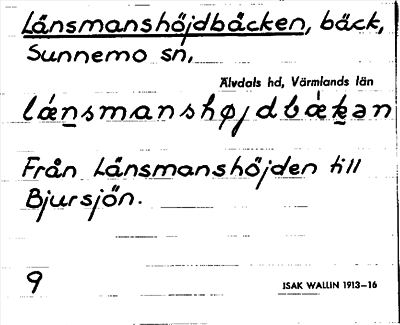 Länsmanshöjdbäcken, bäck,
Sunnemo sn,
Älvdals hd, Värmlands län
lǽnsmanshøjdbǽkan
Från Länsmanshöjden till
Bjursjön.
9
ISAK WALLIN 1913–16